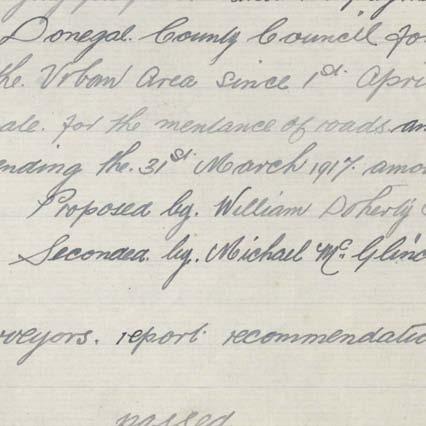 Donegal. County Council fo
the. Urban Area since 1st. Apri
ale. for the mentance of roads an
ending the. 31st. March 1917. amo
Proposed by. William Doherty
Seconded. by. Michael Mc. Glinc
veyors. report. recommendatio
passed